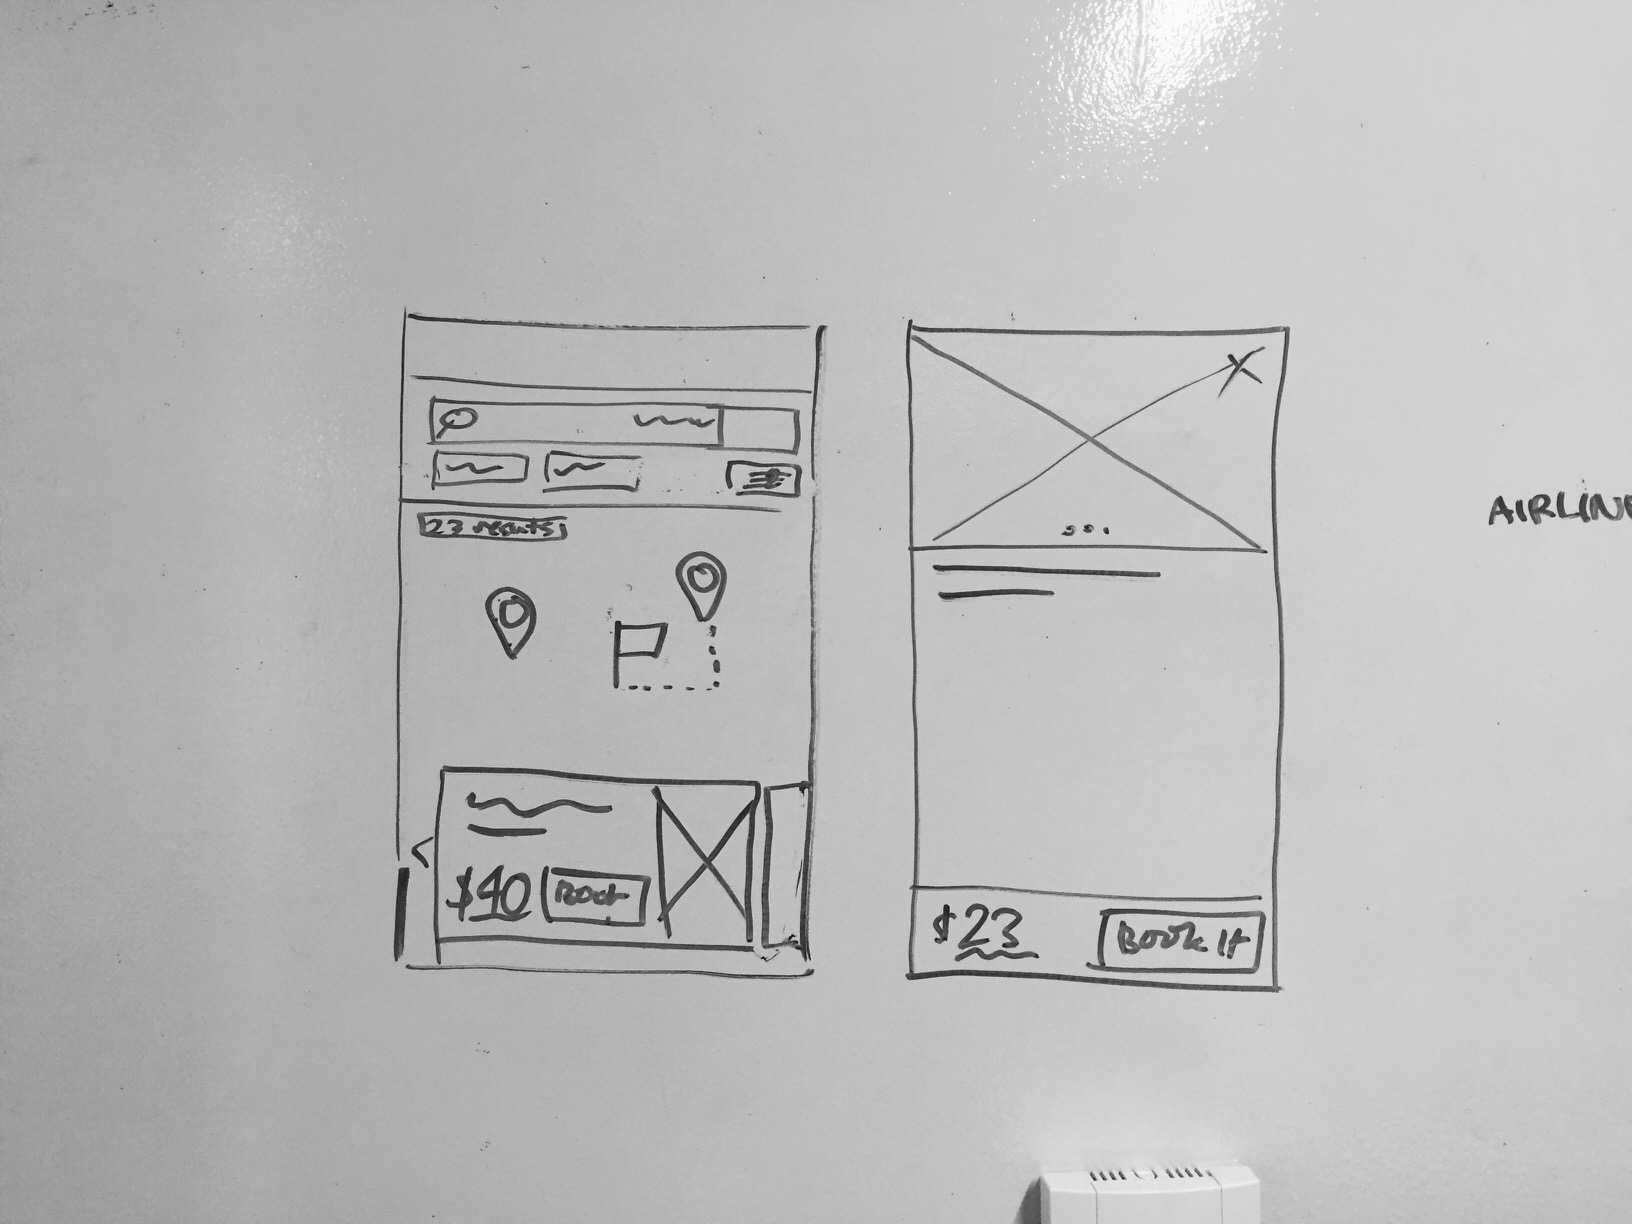 23 results
$40
Book
$23
Book It
AIRLINE